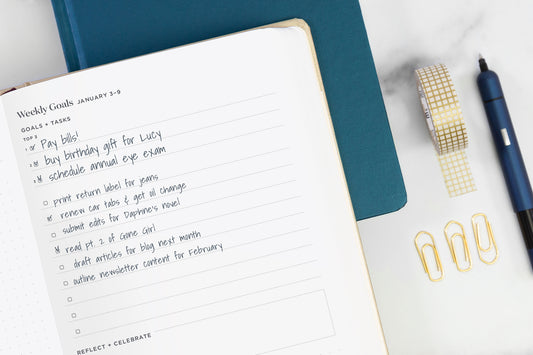 Weekly Goals JANUARY 3-9
GOALS + TASKS
TOP 3
1. Pay bills!
2. buy birthday gift for Lucy
3. schedule annual eye exam
print return label for jeans
renew car tabs & get oil change
submit edits for Daphne's novel
read pt. 2 of Gone Girl
draft articles for blog next month
outline newsletter content for February
REFLECT + CELEBRATE